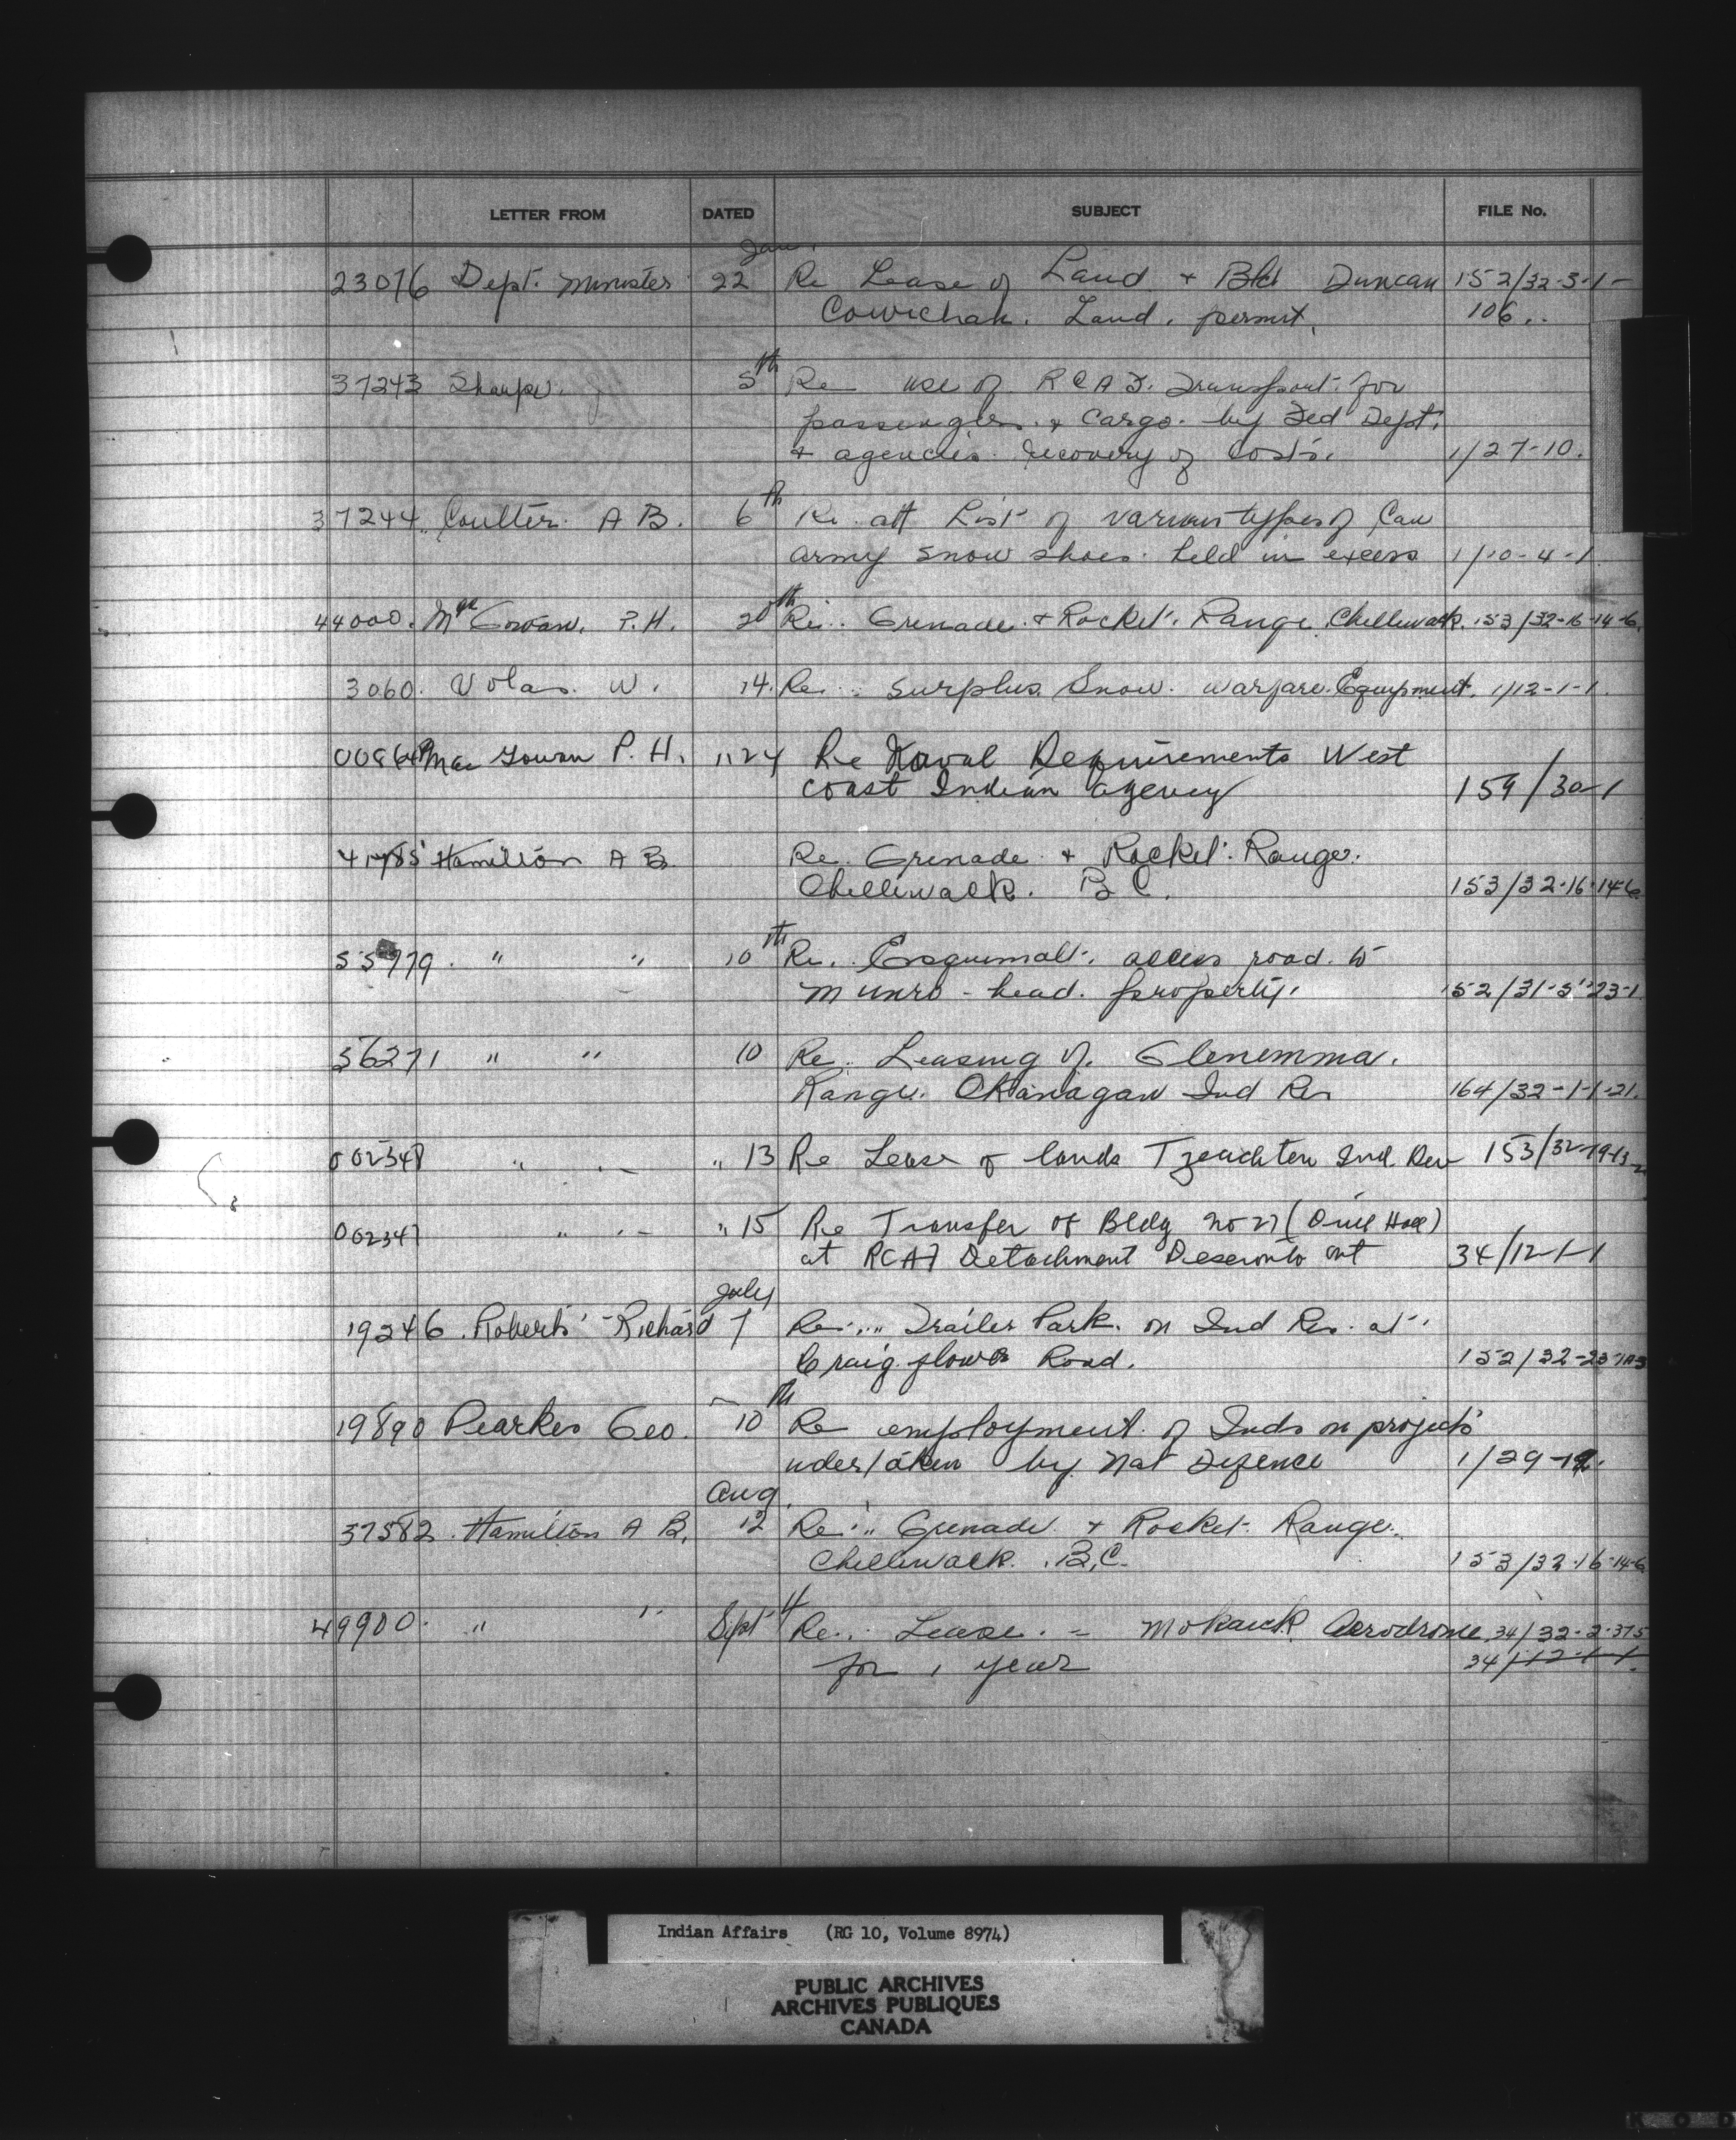 LETTER FROM DATED SUBJECT FILE No.
Jan.
23076 Dept. Minister 22 Re Lease of Land + Bld Duncan 152/32-3-1-
Cowichan. Land. permit. 106..
37243 Sharpe. 5th Re use of RCAF. Transport. for
passenglers. + cargo. by Fed Dept.
+ agencies. recovery of Costs. 1/27-10.
37244. Coulter. A B. 6th Re. att List of various types of Can
army snow shoes. held in excess 1/10-4-1
44000. McGowan. P.H. 20th Re.. Grenade. + Rocket. Range. Chilliwack. 153/32-16-14-6.
3060. Volas. W. 14. Re... Surplus Snow. warfare. Equipment. 1/12-1-1.
00864 MacGowan P. H. " 24 Re Naval Requirements West
coast Indian Agency 159/30-1
41785 Hamilton A B. Re. Grenade + Rocket. Range.
Chilliwack. B C. 153/32-16-14-6
55979. " " 10th Re.. Esquimalt. access road. to
Munro - head. property. 152/31-5-23-1
56271 " " 10 Re. Leasing of. Glenemma.
Range. Okanagan Ind Res 164/32-1-1-21.
002348 " " " 13 Re Lease of lands Tzeachten Ind. Res 153/32-19-13-
002347 " " " 15 Re Transfer of Bldg No 27 (Drill Hall)
at RCAF Detachment Deseronto Ont 34/12-1-1
July
19246. Roberts - Richard 7 Re... Trailer Park. on Ind Res. at
Craig flower Road. 152/32-23-
19890 Pearkes Geo. 10th Re employment. of Inds on projects
undertaken by Nat Defence 1/29-12.
Aug.
37582. Hamilton A B. 12 Re.. Grenade + Rocket. Range.
Chilliwack. B.C. 153/32-16-14-6
49900. " " Sept 4 Re.. Lease. - Mohawk Aerodrome 34/32-2-375
for 1 year 34/12-1-1.
Indian Affairs (RG 10, Volume 8974)
PUBLIC ARCHIVES
ARCHIVES PUBLIQUES
CANADA